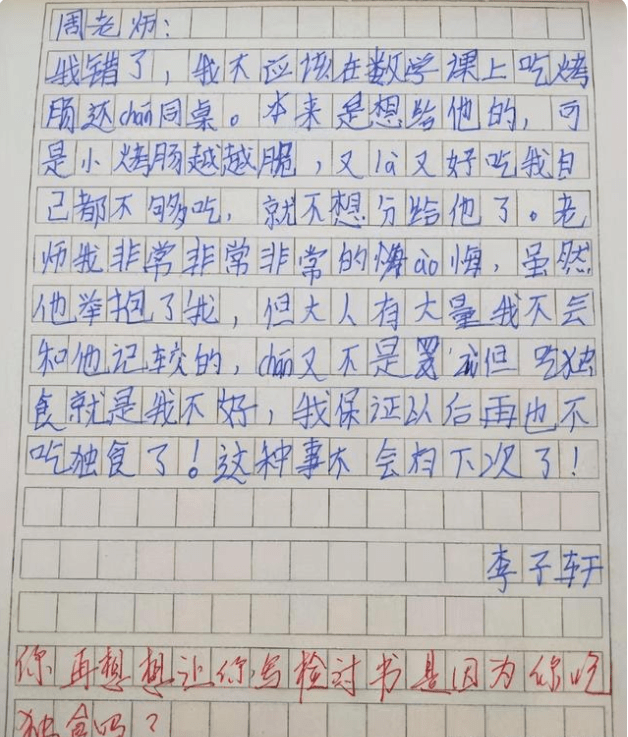 周老师:
我错了，我不应该在数学课上吃烤
肠还chán同桌。本来是想给他的，可
是小烤肠越越脆，又là又好吃我自
己都不够吃，就不想分给他了。老
师我非常非常非常的悔ào悔，虽然
他举抱了我，但大人有大量我不会
和他记较的，chán又不是罪 但吃独
食就是我不好，我保证以后再也不
吃独食了！这种事不会有下次了！
李子轩
你再想想让你写检讨书是因为你吃
独食吗？